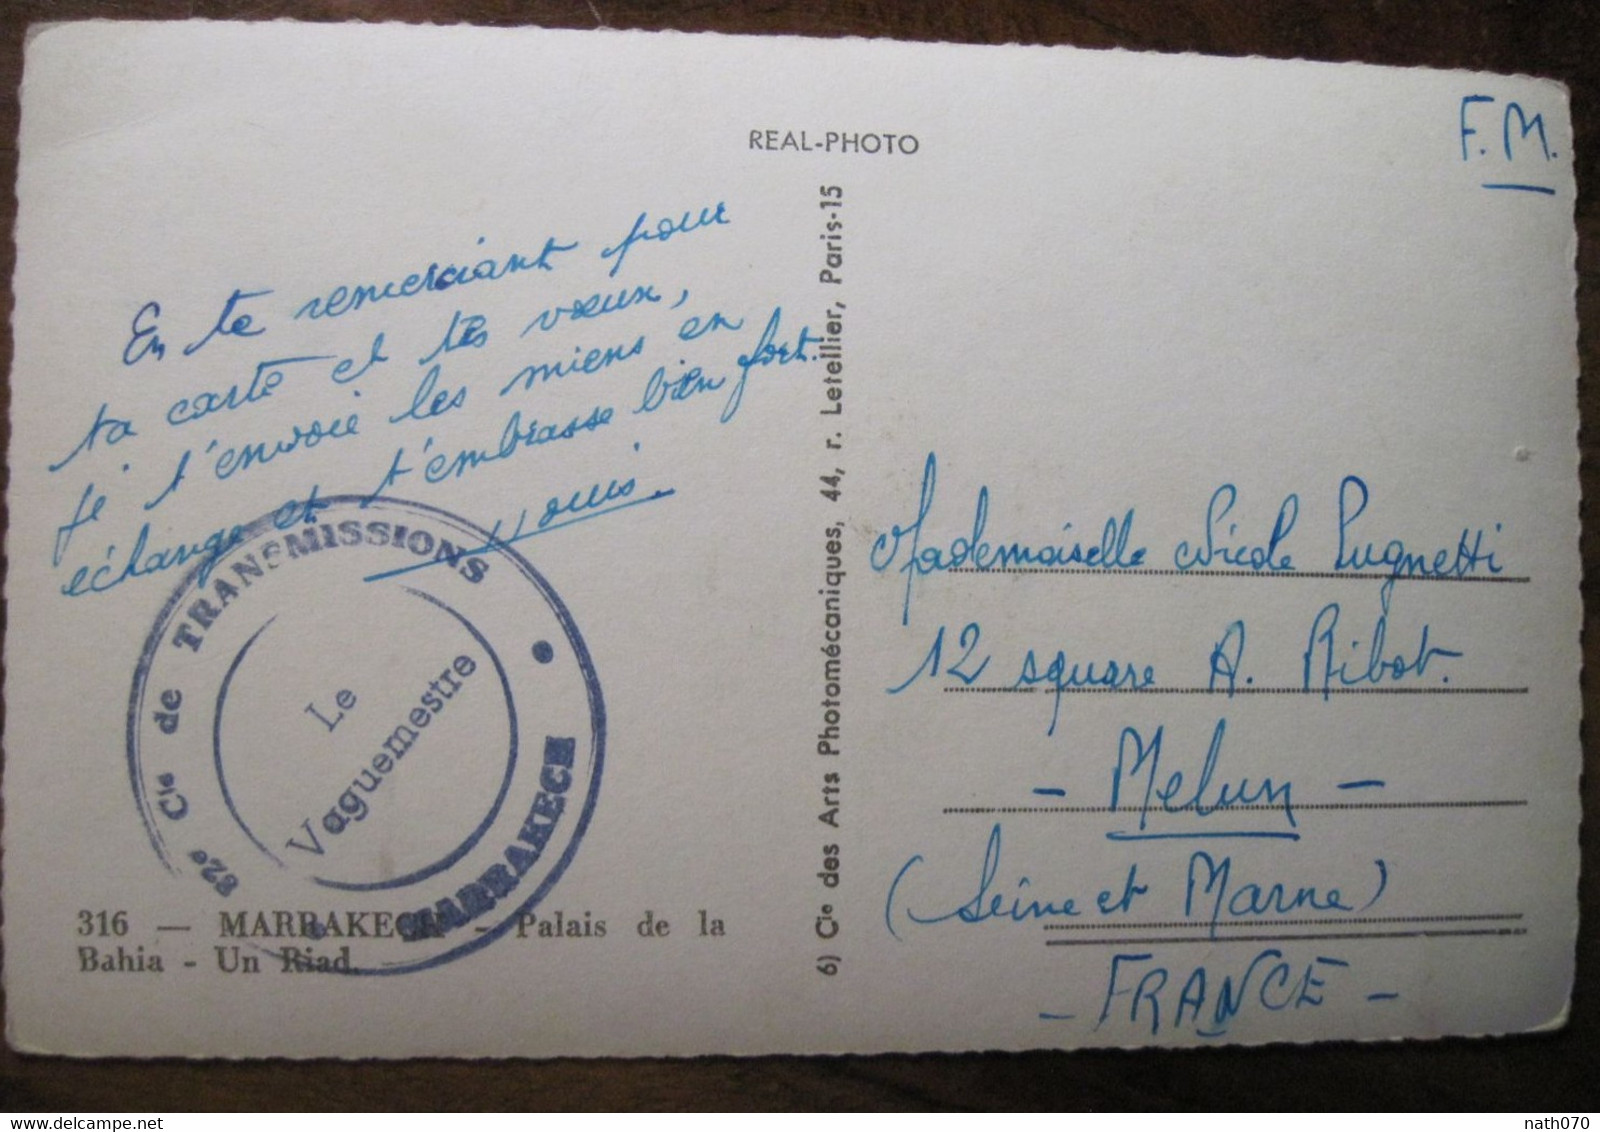 REAL-PHOTO
F.M.
En te remerciant pour
ta carte et tes vœux,
je t'envoie les miens en
échange et t'embrasse bien fort.
Louis.
82e Cie de TRANSMISSIONS
Le
Vaguemestre
MARRAKECH
316 — MARRAKECH - Palais de la
Bahia - Un Riad.
6) Cie des Arts Photomécaniques, 44, r. Letellier, Paris-15
Mademoiselle Nicole Pugnetti
12 square A. Ribot.
- Melun -
(Seine et Marne)
- FRANCE -
delcampe.net
nath070